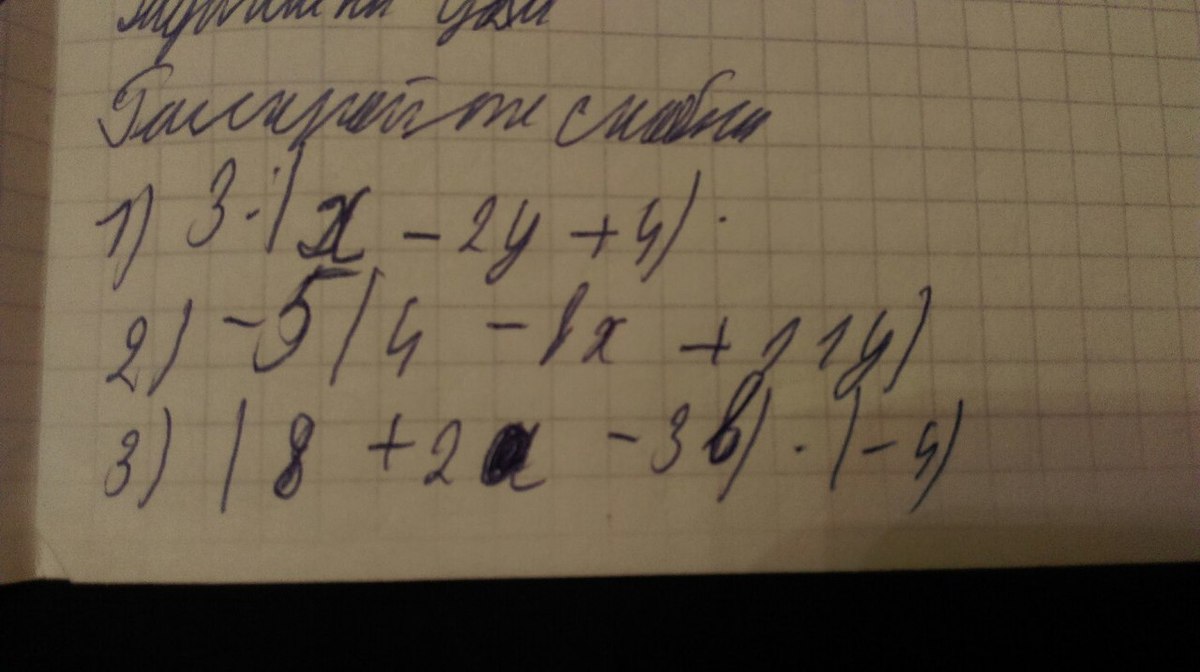 Раскройте скобки
1) 3·(x - 2y + 4)
2) -5(4 - 8x + 11y)
3) (8 + 2a - 3b)·(-4)